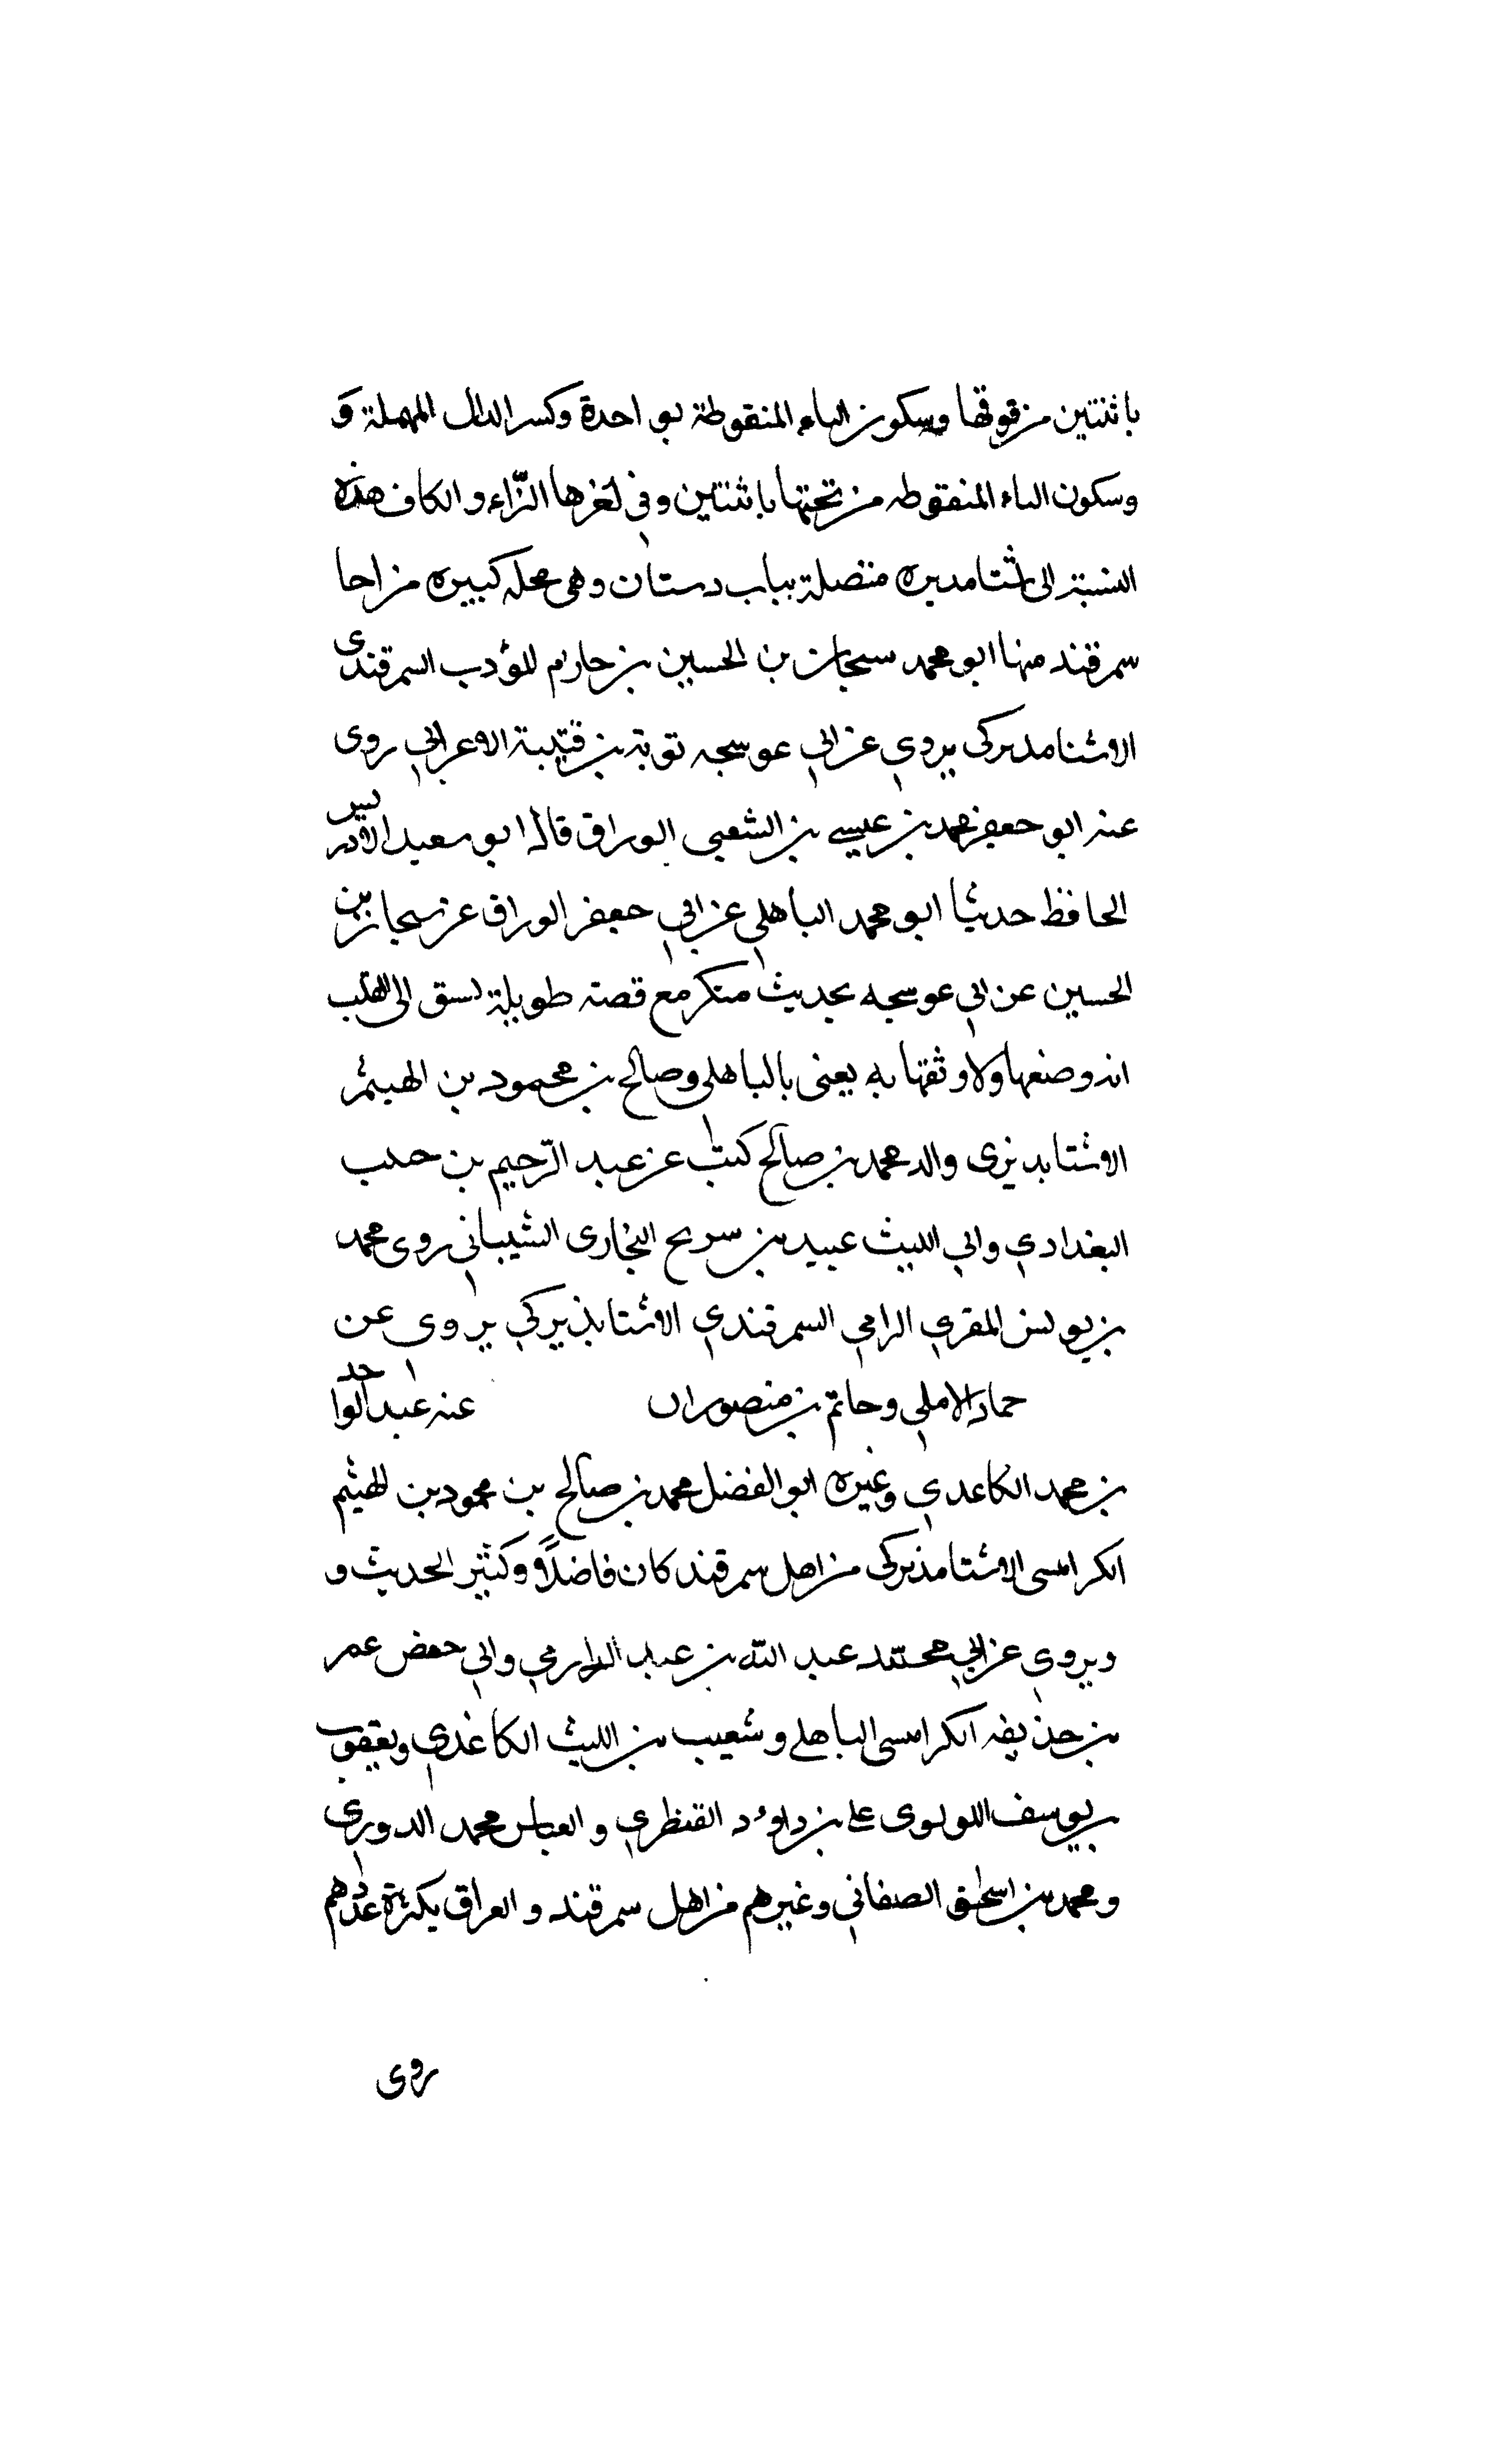 باثنتين من فوقها وسكون الباء المنقوطة بواحدة وكسر الدال المهملة و
وسكون الياء المنقوطه من تحتها باثنتين وفي اخرها الرّاء والكاف هذه
النسبة الى اشتامديره متصلة بباب دستان وهى محله كبيره من احا
سمرقند منها ابو محمد سبحان بن الحسين بن حازم المؤدب السمرقندى
الاشتامديركى يروي عن ابي عوسجه توبة بن قتيبة الاعرابي روى
عنه ابو جعفر محمد بن عيسى بن الشعبى الوراق قال ابو سعيد الادريسى
الحافظ حدثنا ابو محمد الباهلي عن ابي جعفر الوراق عن سبحان بن
الحسين عن ابي عوسجه بحديث منكر مع قصة طويلة تسبق الى القلب
انه وضعها ولا وثقتها به يعنى بالباهلى وصالح بن محمود بن الهيثم
الاشتابديزى والد محمد بن صالح كتب عن عبد الرّحيم بن حبيب
البغدادي وابي الليث عبيد بن سريح البخارى الشيبانى روى محمد
بن يونس المقري الرامي السمرقندي الاشتابذيركي يروى عن
حماد الاملي وحاتم بن منصوران عنه عبد الواحد
بن محمد الكاغدي وغيره ابو الفضل محمد بن صالح بن محمود بن الهيثم
الكرابسى الاشتامذيركى من اهل سمرقند كان فاضلاً وكثير الحديث و
ويروي عن ابي محمّد عبد الله بن عبد الدارمي وابي حفص عمر
بن حذيفه الكرابسى الباهلي وشعيب بن الليث الكاغدي ويعقوب
بن يوسف اللولوى علي بن داوود القنطري والعباس محمد الدوري
ومحمد بن اسحق الصغاني وغيرهم من اهل سمرقند والعراق يكثرة عددهم
روى